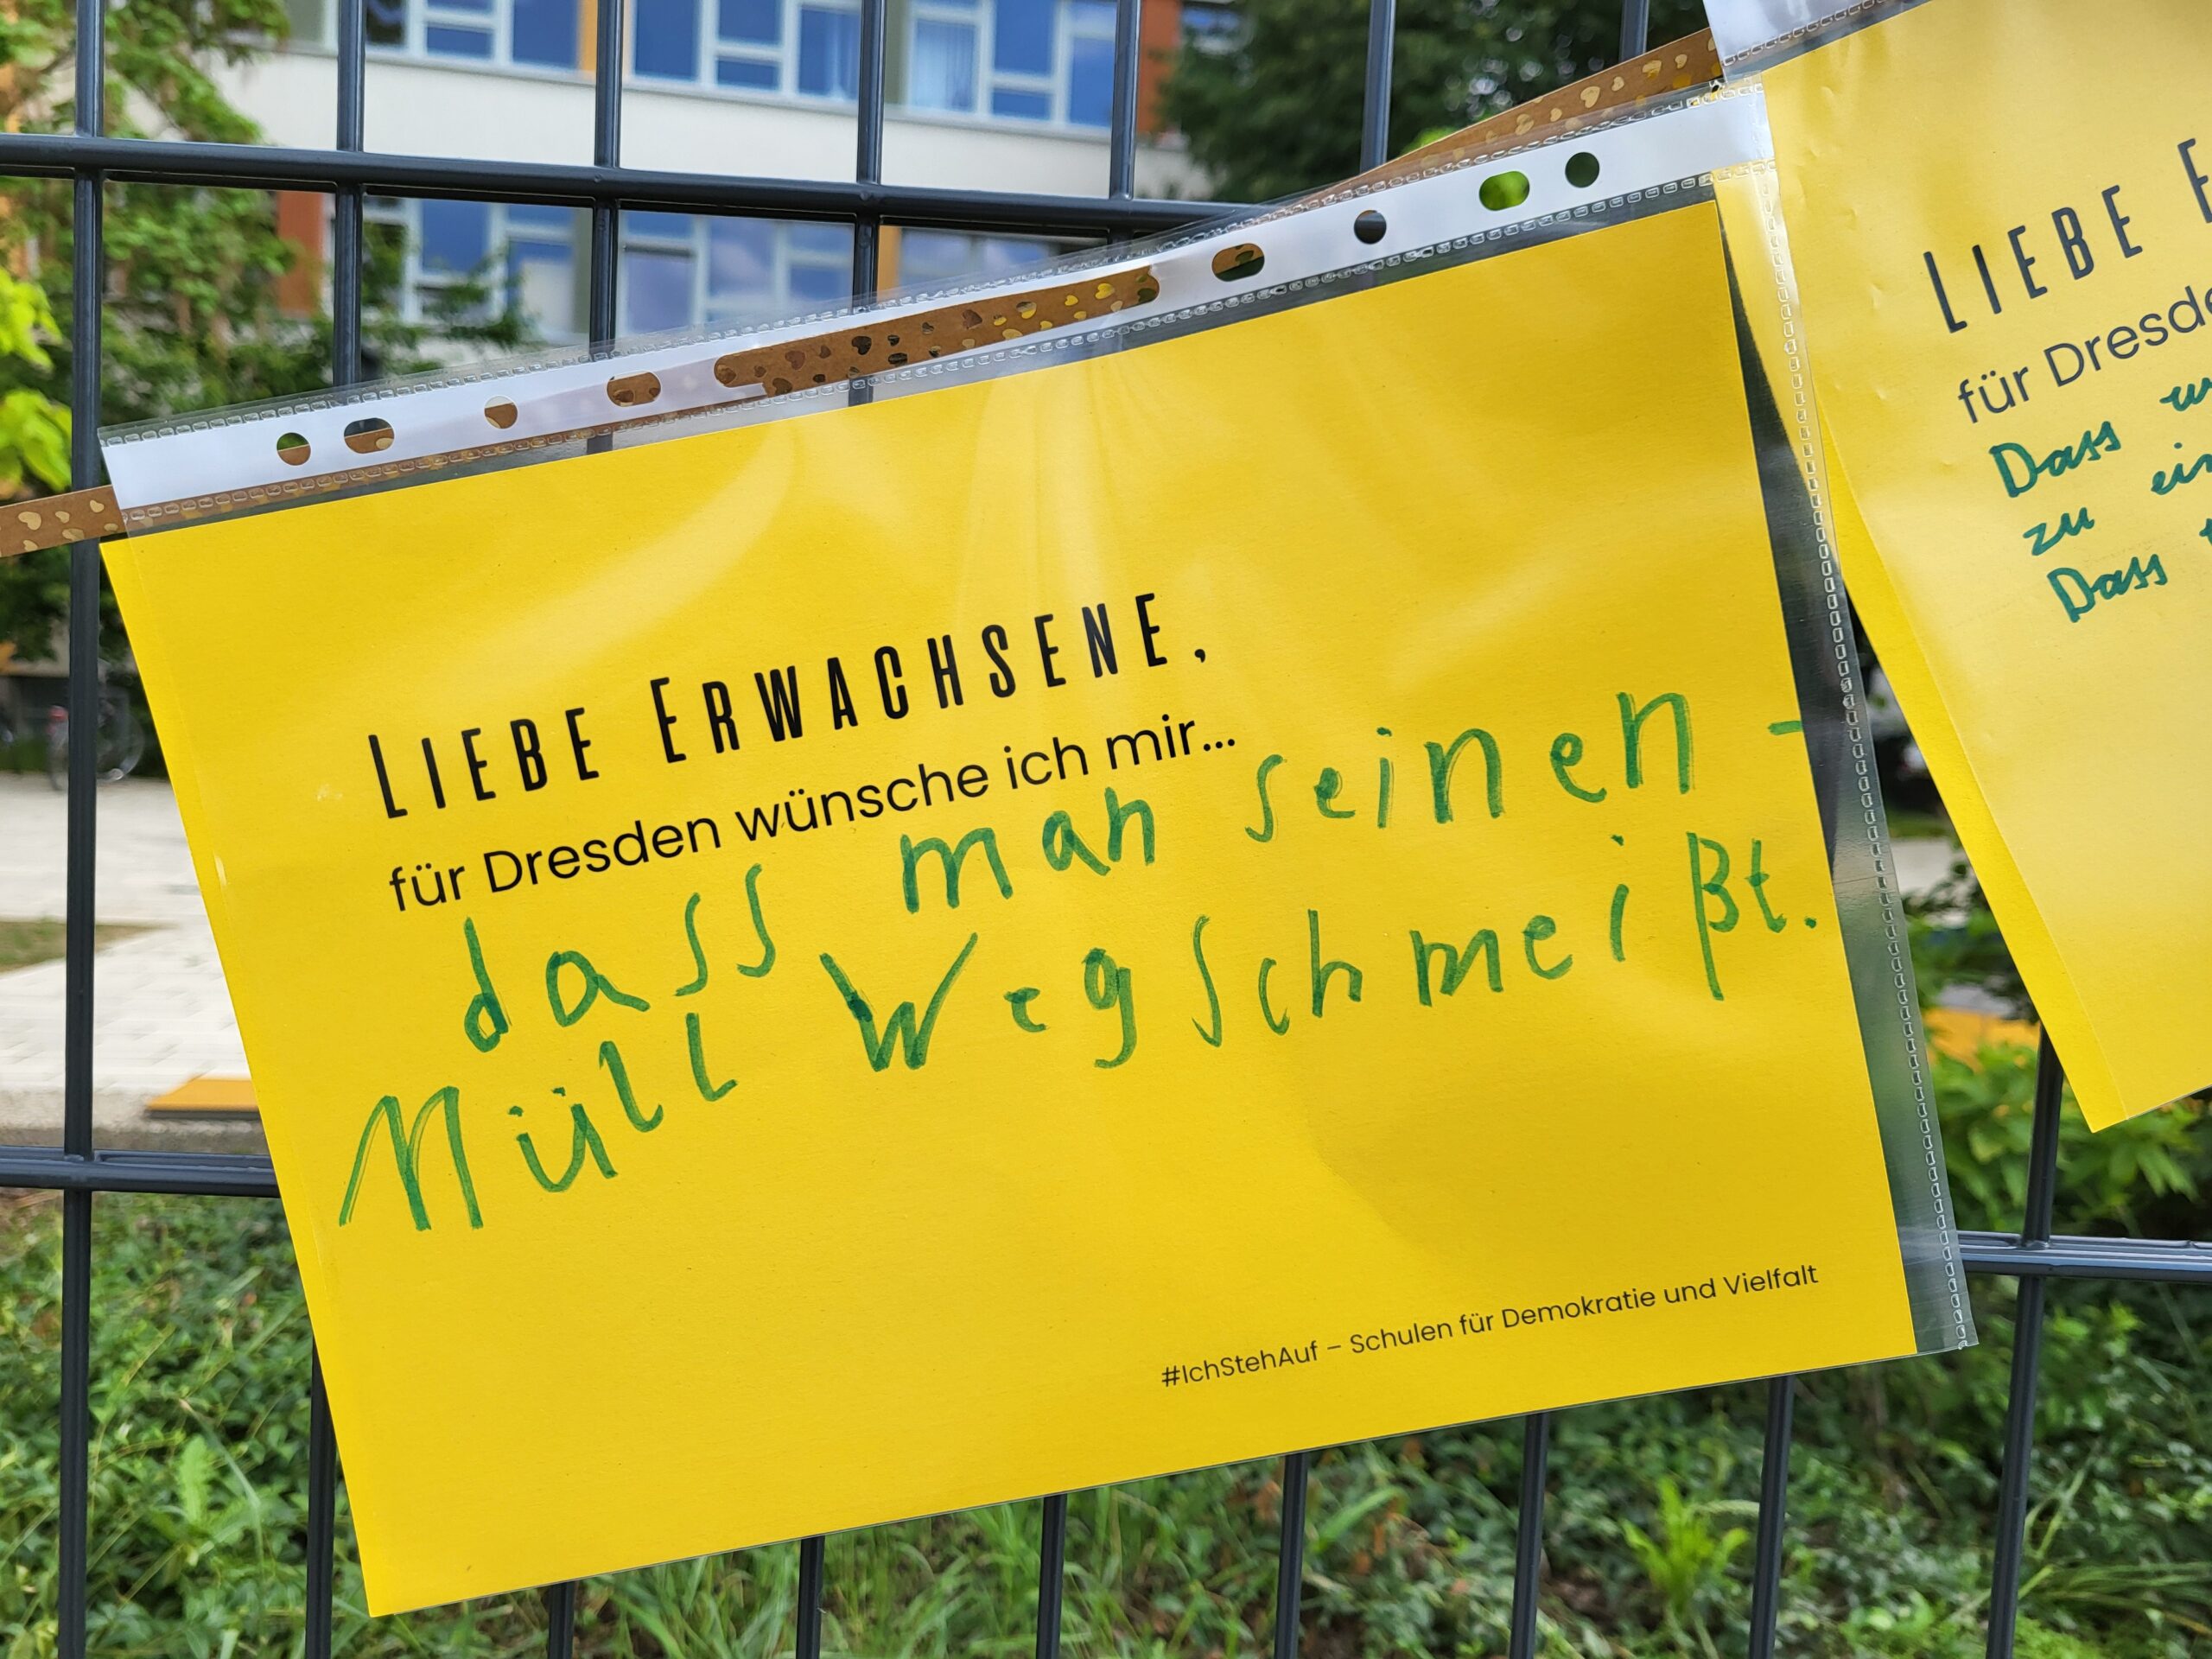 LIEBE ERWACHSENE,
für Dresden wünsche ich mir...
dass man seinen -
Müll Wegschmeißt.
#IchStehAuf – Schulen für Demokratie und Vielfalt
LIEBE
für
Dass
zu
Dass